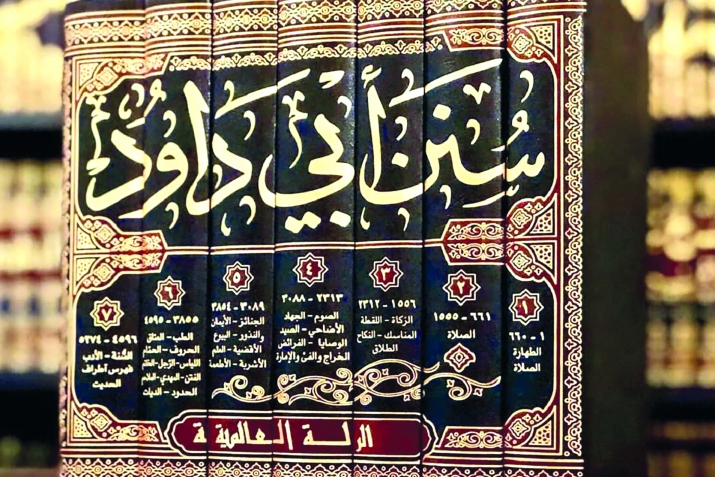 سُنَن أَبي دَاوُد
١
١ - ٦٦٠
الطهارة
الصلاة
٢
٦٦١ - ١٥٥٥
الصلاة
٣
١٥٥٦ - ٢٣١٢
الزكاة - اللقطة
المناسك - النكاح
الطلاق
٤
٢٣١٣ - ٣٠٨٨
الصوم - الجهاد
الأضاحي - الصيد
الوصايا - الفرائض
الخراج والفيء والإمارة
٥
٣٠٨٩ - ٣٨٥٤
الجنائز - الأيمان
والنذور - البيوع
الأقضية - العلم
الأشربة - الأطعمة
٦
٣٨٥٥ - ٤٥٩٥
الطب - العتاق
الحروف - الحمّام
اللباس - الترجل - الخاتم
الفتن - المهدي - الملاحم
الحدود - الديات
٧
٤٥٩٦ - ٥٢٧٤
السُّنَّة - الأدب
فهرس أطراف
الحديث
العالمية